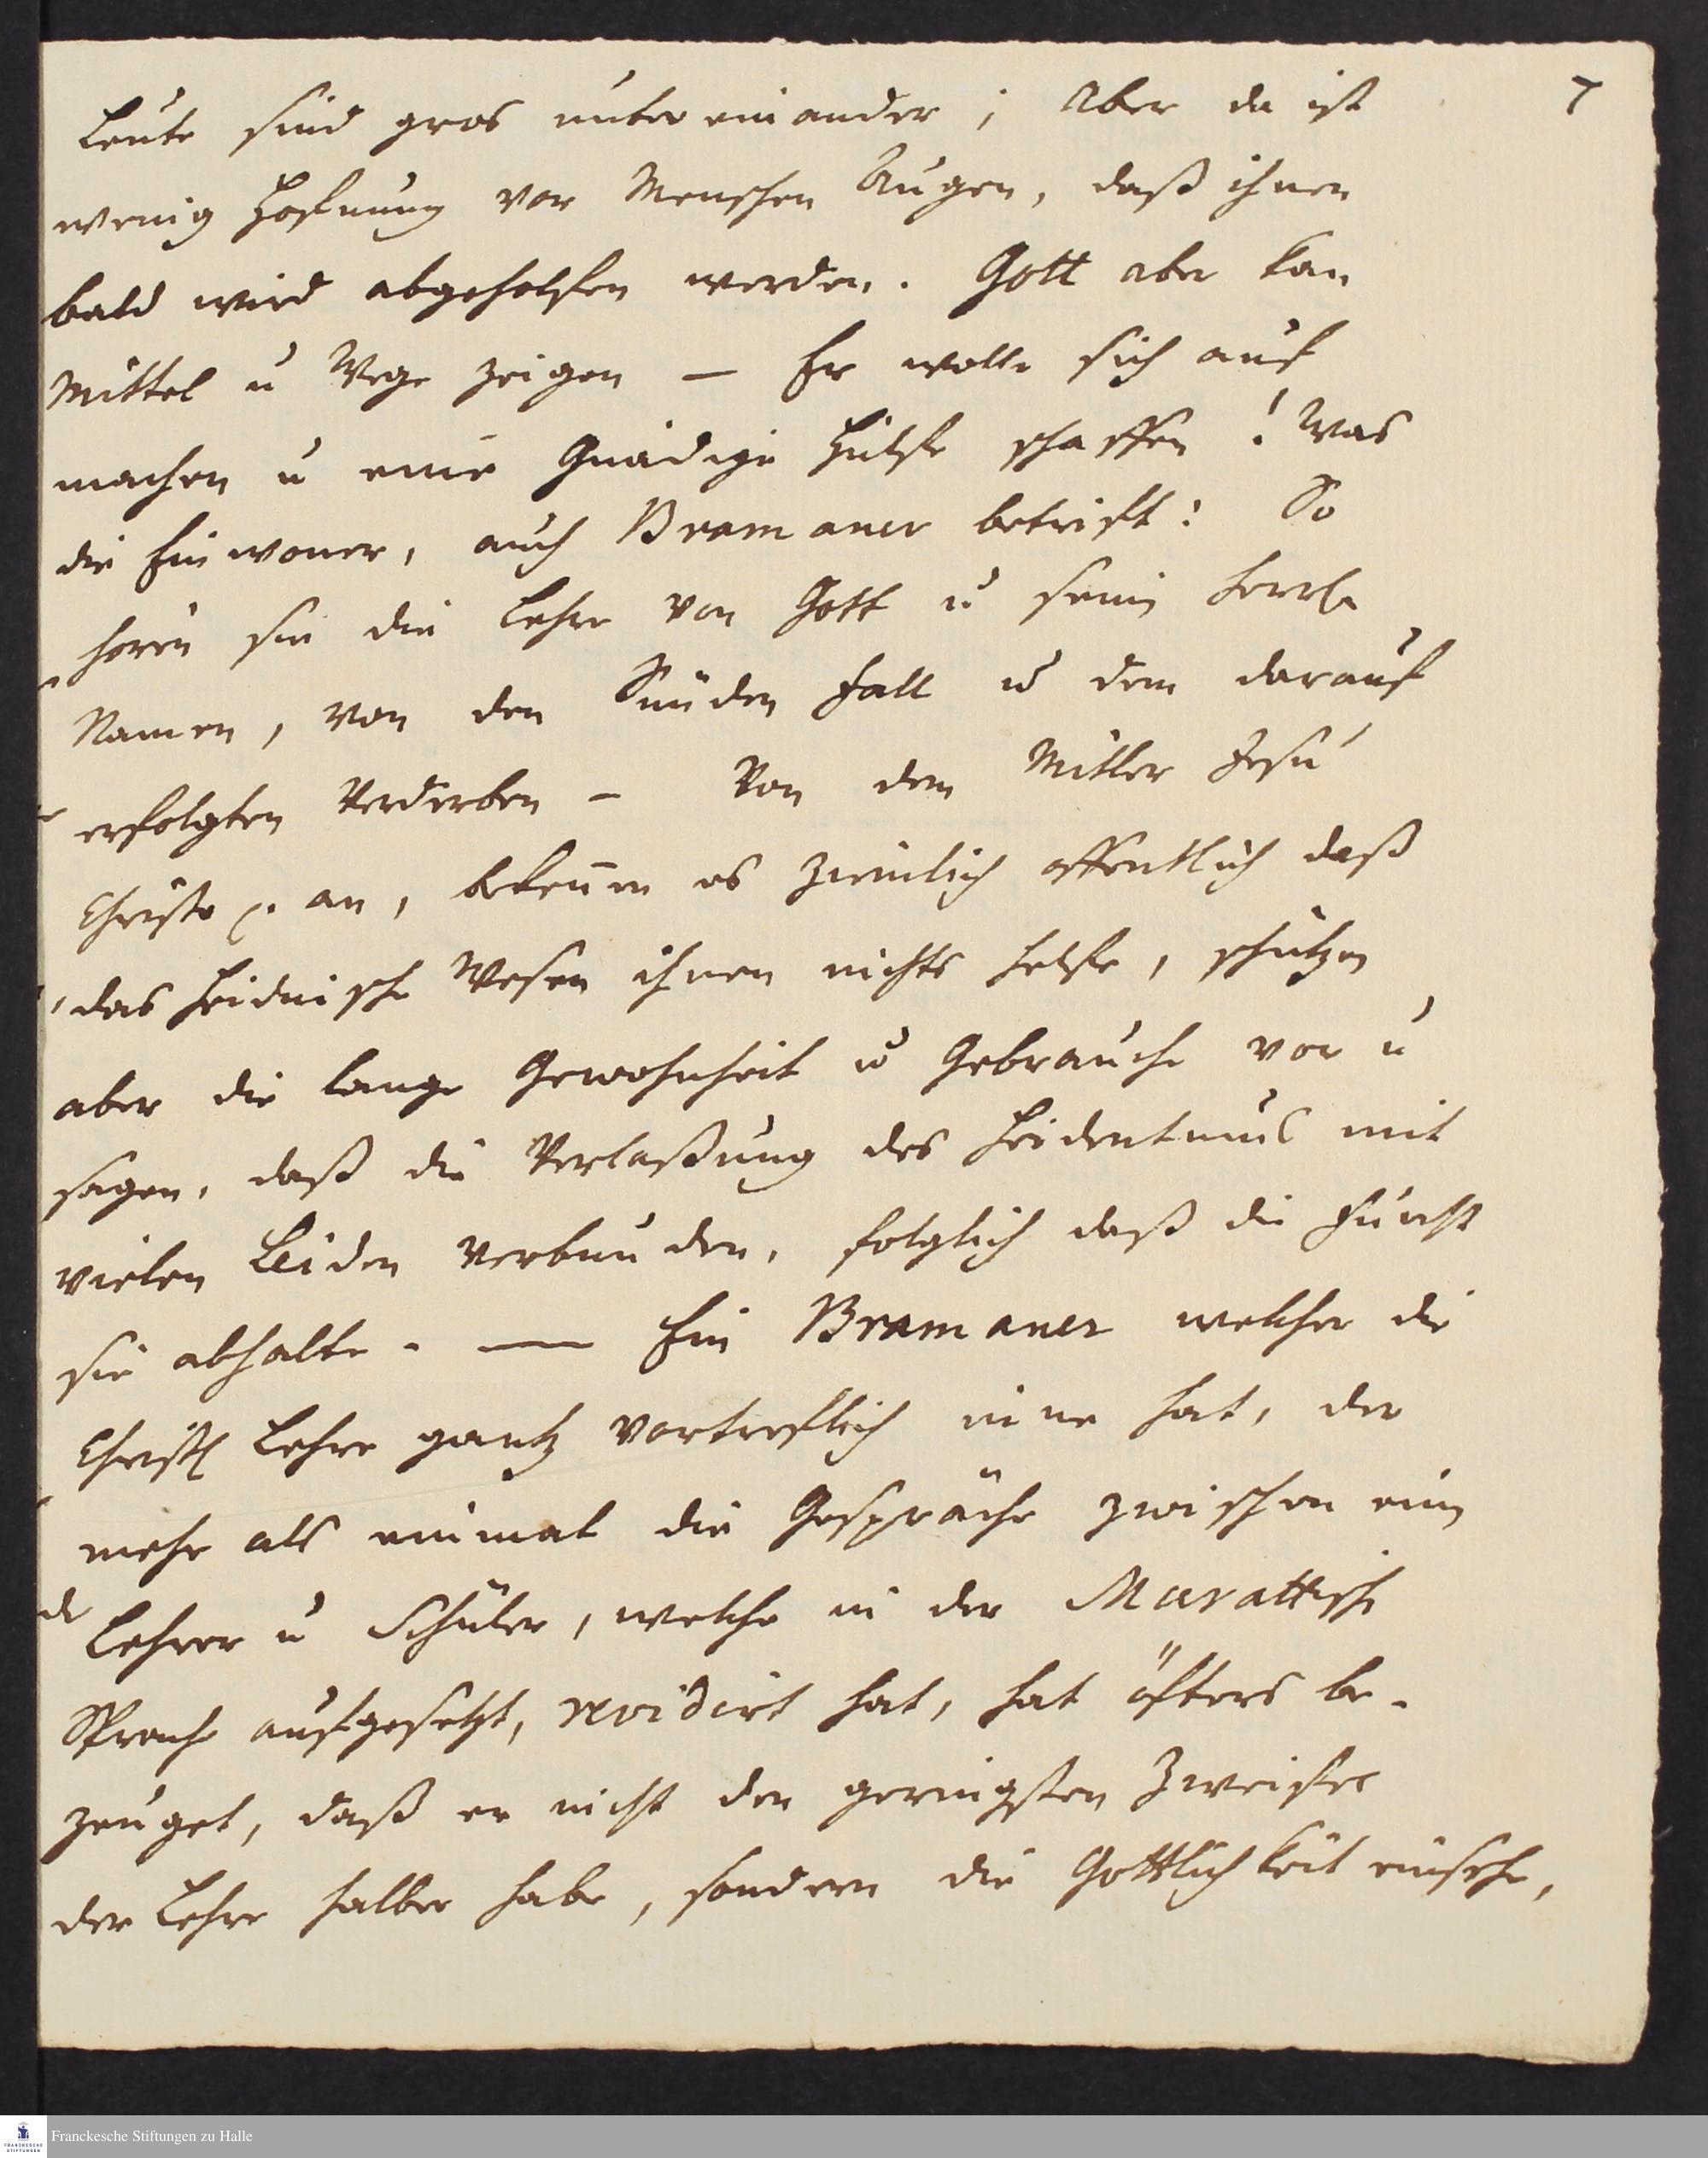 7
Leute sind gros unter einander; Aber da ist
wenig Hofnung vor Menschen Augen, daß ihnen
bald wird abgeholfen werden. Gott aber kan
Mittel u Wege zeigen — Er wolle sich auf
machen u eine Gnädige Hülfe schaffen! Was
die Einwoner, auch Bramaner betrift: So
hören sie die Lehre von Gott u seinen
Namen, von den Sünden Fall u dem darauf
erfolgten Verderben – Von dem Mitler Jesu
Christo p. an, bekeñen es ziemlich offentlich daß
das Heidnische Wesen ihnen nichts helfe, schützen
aber die lange Gewohnheit u Gebrauche vor u
sagen, daß die Verlaßung des Heidentums mit
vielen Leiden verbunden, folglich daß die Furcht
sie abhalte. — Ein Bramaner welcher die
Christl Lehre gantz vortreflich inne hat, der
mehr als einmal die Gespräche zwischen einen
Lehrer u Schüler, welche in der Marattische
Sprache aufgesetzt, revidirt hat, hat öfters be-
zeuget, daß er nicht den geringsten Zweifel
der Lehre halber habe, sondern die Gottlichkeit einsehe,
Franckesche Stiftungen zu Halle